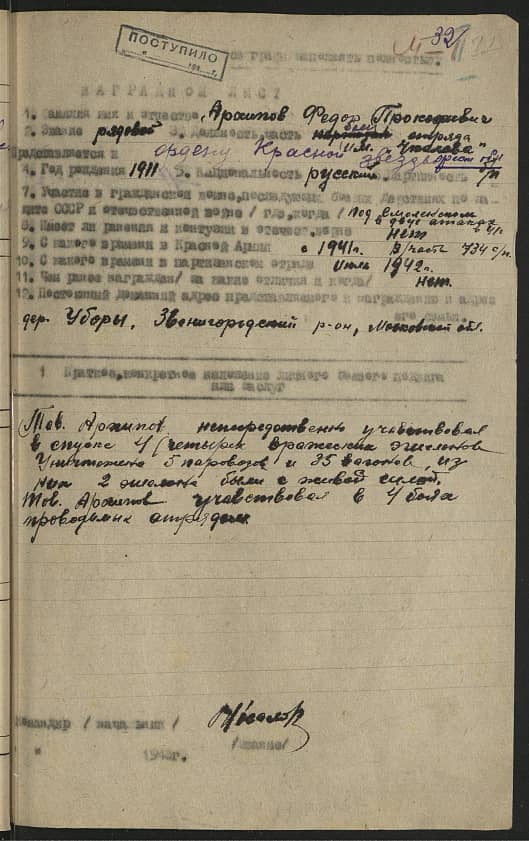 ПОСТУПИЛО
32
графы заполнять полностью.
НАГРАДНОЙ ЛИСТ
1. Фамилия имя и отчество Архипов Федор Прокофиевич
2. Звание рядовой 3. Должность, часть боец отряда
представляется к ордену Красной Звезды им. "Чкалова"
4. Год рождения 1911 5. Национальность русский 6. Партийность б/п
7. Участие в гражданской войне, последующих боевых действиях по за-
щите СССР и отечественной войне /где, когда/ под Смоленском
в двух атаках
8. Имеет ли ранения и контузии в отечест. войне нет
9. С какого времени в Красной Армии с 1941г. в/часть 734 с/п.
10. С какого времени в партизанском отряде июль 1942г.
11. Чем ранее награжден/ за какие отличия и когда/ нет.
12. Постоянный домашний адрес представляемого к награждению и адрес
его семьи.
дер. Уборы, Звенигородский р-он, Московской обл.
1 Краткое, конкретное изложение личного боевого подвига
или заслуг
Тов. Архипов непосредственно учавствовал
в спуске 4 (четырех вражеских эшелонов
Уничтожено 5 паровозов и 35 вагонов, из
них 2 эшелона были с живой силой.
Тов. Архипов учавствовал в 4 боях
проводимых отрядом.
Командир /нача
/звание/
" 194 г.